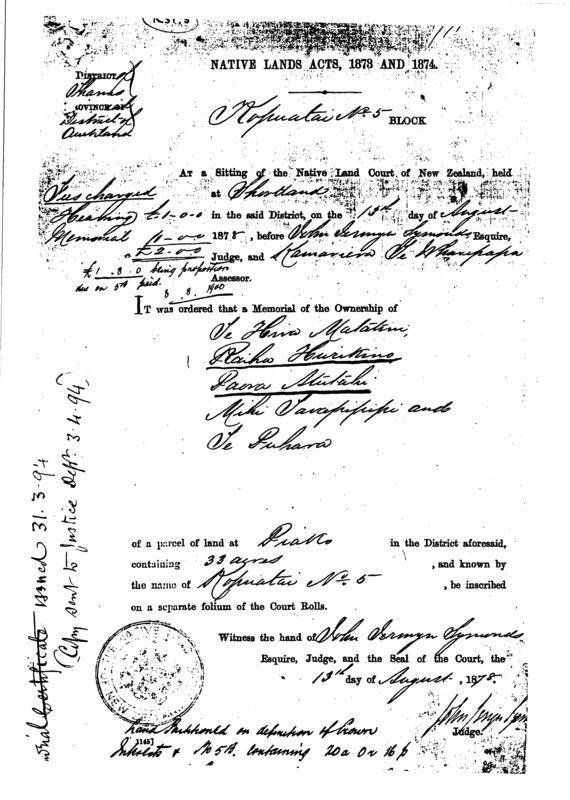 NATIVE LANDS ACTS, 1873 AND 1874.
DISTRICT of
Thames
District of
Auckland
Kopuatai No. 5 BLOCK
AT a Sitting of the Native Land Court of New Zealand, held
at Shortland
Fees charged
Hearing £1-0-0 in the said District, on the 13th day of August
Memorial 1-0-0 1878, before John Jermyn Symonds Esquire,
£2-0-0 Judge, and
£1.8.0 being proportion
Assessor.
due on 5B paid.
8.8.1900
IT was ordered that a Memorial of the Ownership of
Te Hira
Raiha Hurikino
Paora
Miki Tarapipipi and
Te Puhara
of a parcel of land at Piako in the District aforesaid,
containing 33 acres, and known by
the name of Kopuatai No. 5, be inscribed
on a separate folium of the Court Rolls.
Witness the hand of John Jermyn Symonds
Esquire, Judge, and the Seal of the Court, the
13th day of August, 1878.
Judge.
land Partitioned on definition of Crown
[1145]
Interests & No 5B. containing 20a 0r 16p
Certificate issued 31.3.94
(Copy sent to Justice Dept. 3.4.94)